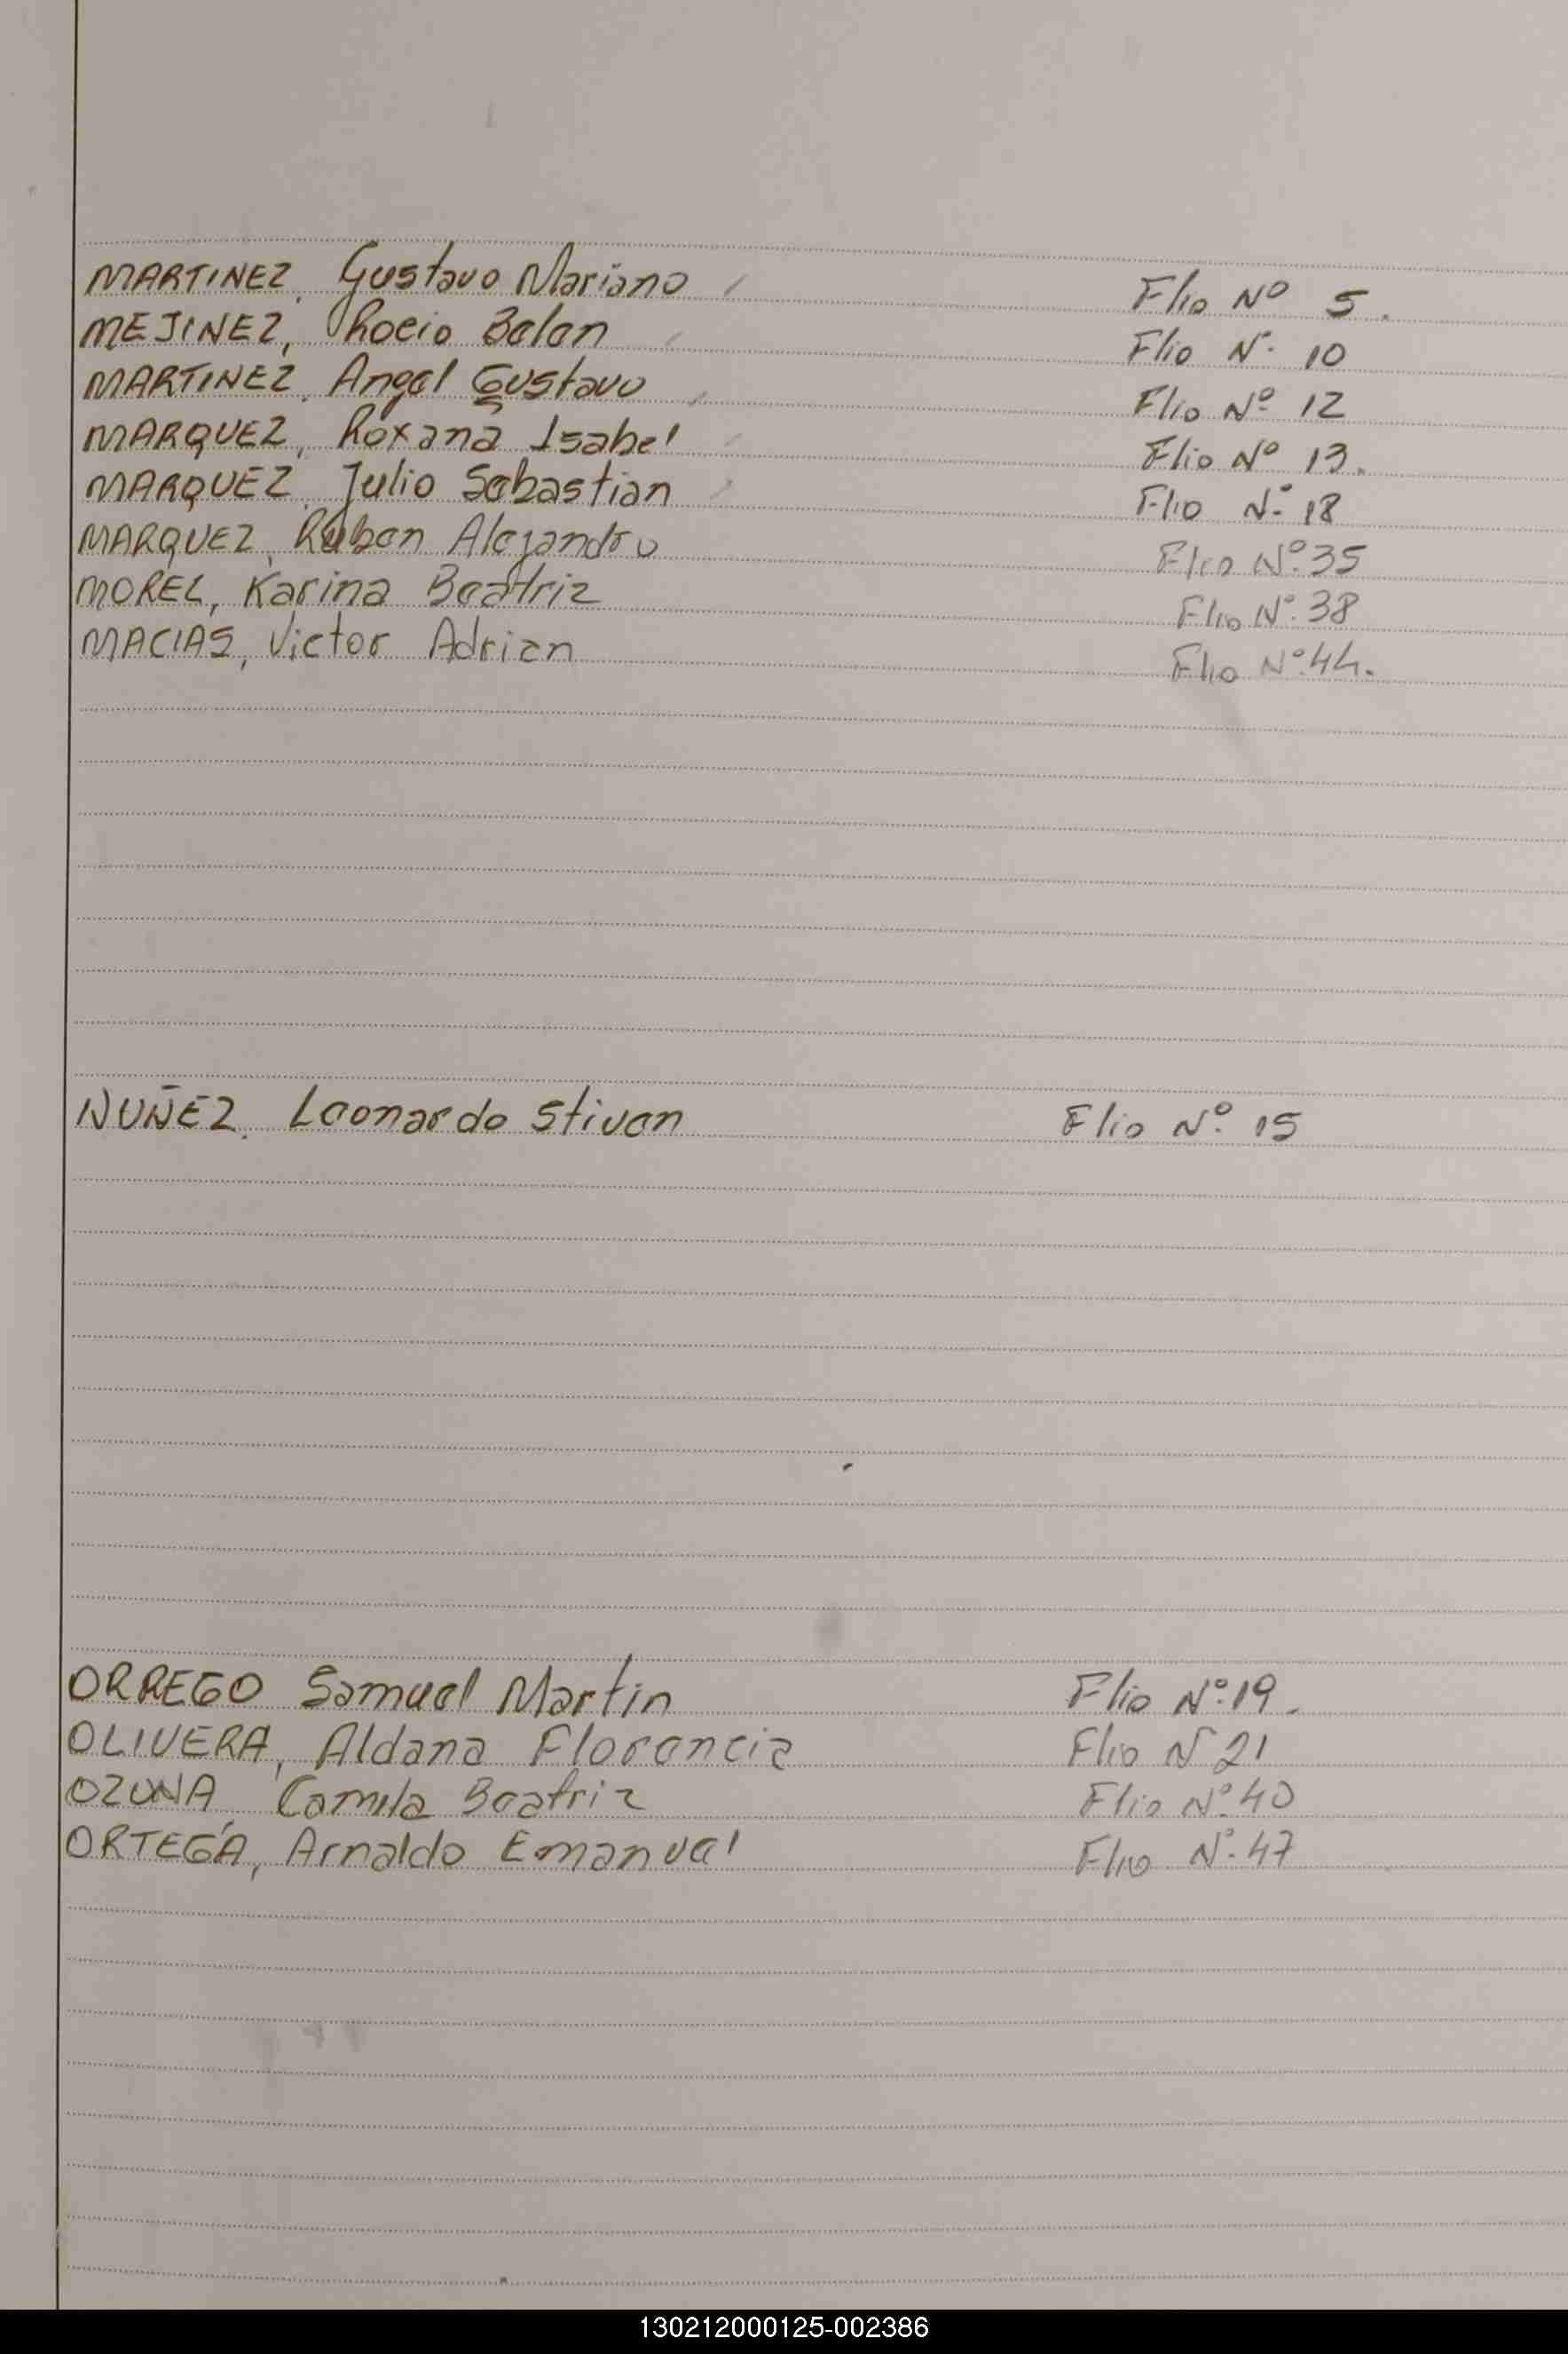 MARTINEZ, Gustavo Mariano Flio Nº 5.
MEJINEZ, Rocio Belen Flio Nº 10
MARTINEZ, Angel Gustavo Flio Nº 12
MARQUEZ, Roxana Isabel Flio Nº 13.
MARQUEZ, Julio Sebastian Flio Nº 18
MARQUEZ, Ruben Alejandro Flio Nº 35
MOREL, Karina Beatriz Flio Nº 38
MACIAS, Victor Adrian Flio Nº 44.
NUÑEZ, Leonardo Stiven Flio Nº 15
ORREGO Samuel Martin Flio Nº 19.
OLIVERA, Aldana Florencia Flio Nº 21
OZUNA, Camila Beatriz Flio Nº 40
ORTEGA, Arnaldo Emanuel Flio Nº 47
130212000125-002386